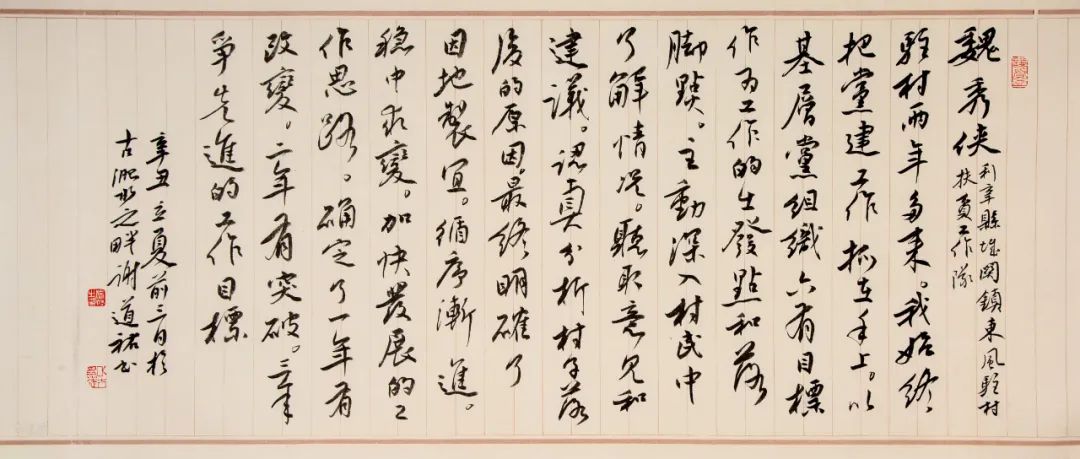 魏秀侠
利辛縣城関鎮東風駐村
扶貧工作隊
駐村両年多来。我始終
把黨建工作抓在手上。以
基層黨組織六有目標
作為工作的出發點和落
脚點。主動深入村民中
了解情况。聽取意見和
建議。認真分析村子落
後的原因。最終明確了
因地製宜。循序漸進。
穏中求變。加快發展的工
作思路。確定了一年有
改變。二年有突破。三年
爭先進的工作目標
辛丑立夏前三日於
古淝水之畔謝道祐书